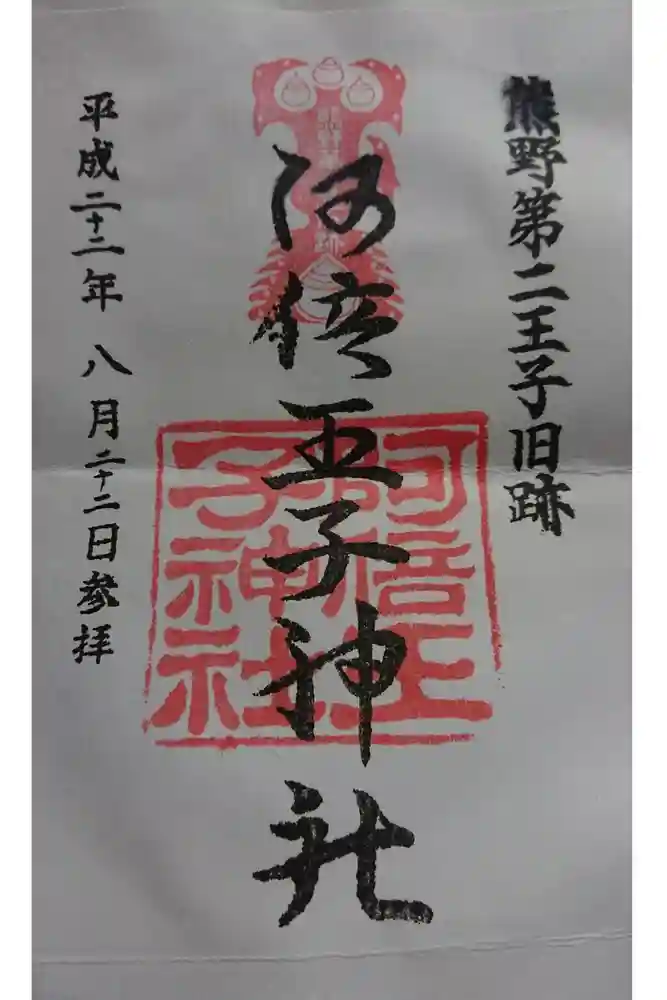 熊野第二王子旧跡
阿倍王子神社
阿倍王子神社
平成二十二年八月二十二日参拝